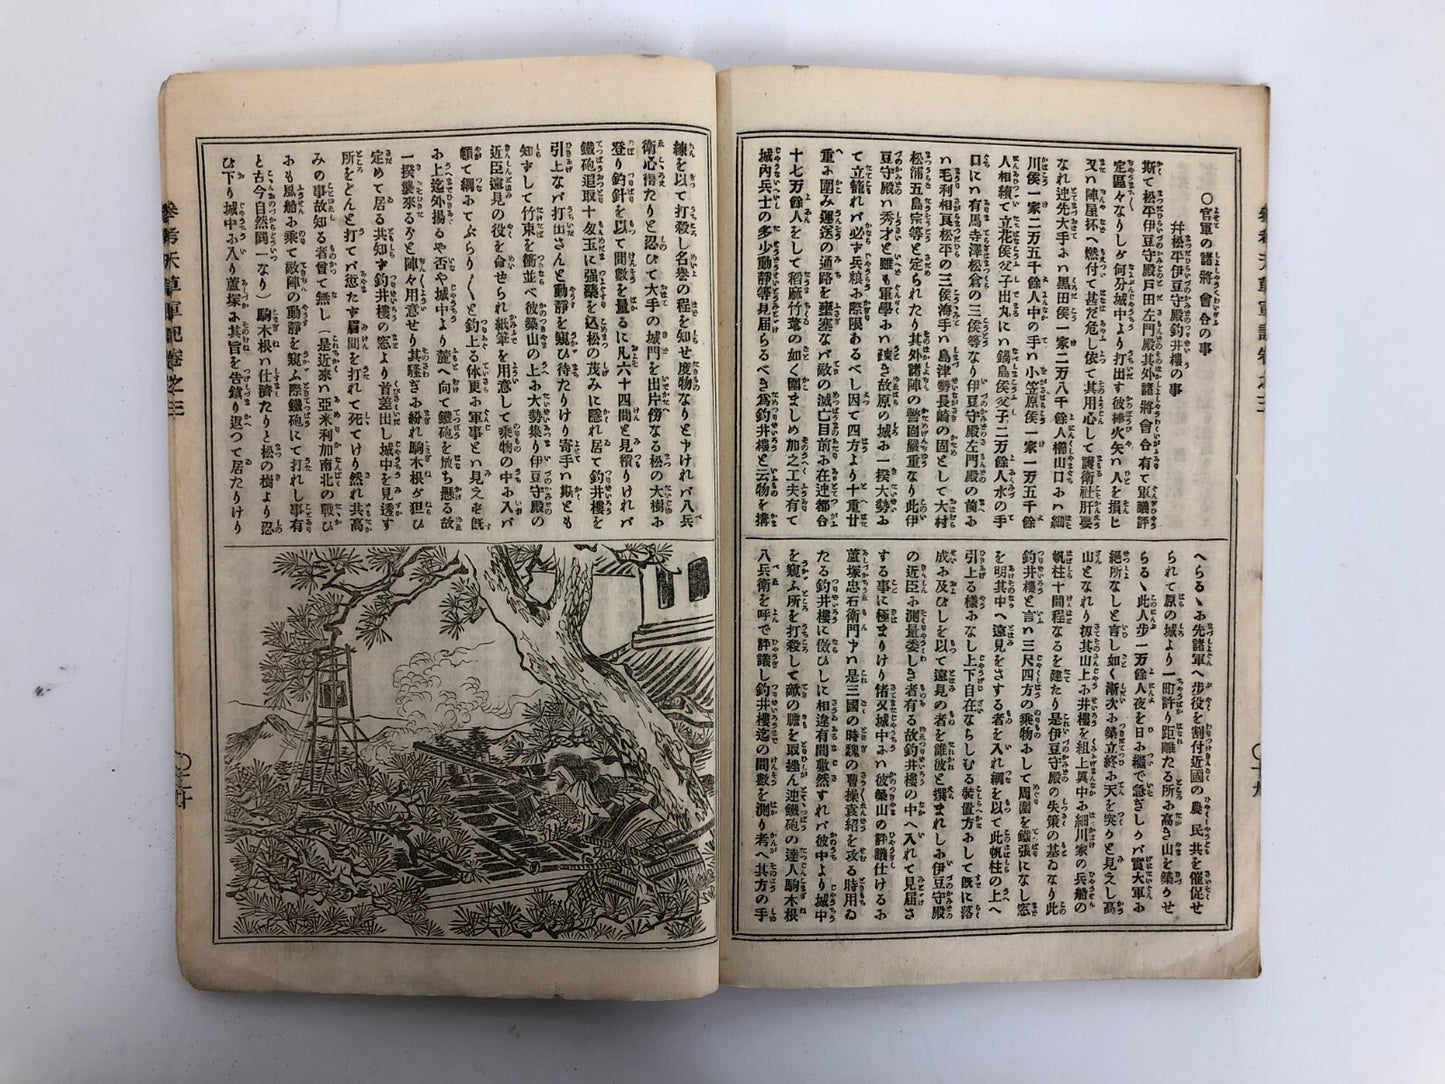 ○官軍の諸將會合の事
幷松平伊豆守殿釣井樓の事
斯て松平伊豆守殿戸田左門殿其外諸將會合有て軍議評
定區々なりしが何分城中より打出す彼棒火矢ハ人を損じ
又ハ陣屋抔へ燃付て甚だ危し依て其用心して護衛社肝要
なれ迚先大手よハ黒田侯一家二万八千餘人樋山口おハ細
川侯一家二万五千餘人中の手ハ小笠原侯一家一万五千餘
人相續て立花侯父子出丸にハ鍋島侯父子二万餘人水の手
口にハ有馬寺澤松倉の三侯等なり伊豆守殿左門殿の前お
ハ毛利相良松平の三侯海手ハ島津勢長崎の固として大村
松浦五島宗等と定られたり其外諸陣の警固嚴重なり此伊
豆守殿ハ秀才と雖も軍學おハ疎き故原の城お一揆大勢お
て立籠れバ必ず兵粮お際限あるべし因て四方より十重廿
重お圍み運送の通路を壅塞なバ敵の滅亡目前お在迚都合
十七万餘人をして稻麻竹葦の如く圍ましめ加之工夫有て
城內兵士の多少動靜等見屆らるべき爲釣井樓と云物を搆
へらるゝお先諸軍へ步役を割付近國の農民共を催促せ
られて原の城より一町許り距離たる所お高き山を築かせ
らるゝ此人步一万餘人夜を日お繼で急ぎしかバ實大軍お
絕所なしと言し如く漸次お築立終お天を突かと見えし高
山となれり扨其山上お井樓を組上眞中お細川家の兵船の
帆柱十間程なるを建たり是伊豆守殿の失策の基ゐなり此
釣井樓と言ハ三尺四方の乘物おして周圍を鐵張になし窓
を明其中へ遠見をさする者を入れ綱を以て此帆柱の上へ
引上る樣おなし上下自在ならしむる裝置方おして旣に落
成お及びしを以て遠見の者を誰彼と撰まれしお伊豆守殿
の近臣お測量委しき者有る故釣井樓の中へ入れて見屆さ
する事に極まりけり偖又城中おハ彼築山の評議仕けるお
蘆塚忠右衛門申ハ是三國の時魏の曹操袁紹を攻る時用ゐ
たる釣井樓に倣ひしに相違有間敷然すれバ彼中より城中
を窺ふ所を打殺して敵の膽を取挫ん迚鐵砲の達人駒木根
八兵衛を呼で評議し釣井樓迄の間數を測り考へ其方の手
練を以て打殺し名譽の程を知せ度物なりと申けれバ八兵
衛心得たりと忍びて大手の城門を出片傍なる松の大樹お
登り釣針を以て間數を量るに凡六十四間と見積りけれバ
鐵砲追取十匁玉に强藥を込松の茂みに隱れ居て釣井樓を
引上なバ打出さんと動靜を窺ひ待たりけり寄手ハ斯とも
知ずして竹束を衝並べ彼築山の上お大勢集り伊豆守殿の
近臣遠見の役を命せられ紙筆を用意して乘物の中お入バ
頓て綱おてぶらり〱と釣上る体更お軍事とハ見えも旣
お上迄外揚るや否や城中より麓へ向て鐵砲を放ち懸る故
一揆襲來るぞと陣々用意せり其騷ぎお紛れ駒木根ガ狙ひ
定めて居る共知ず釣井樓の窓より首差出し城中を見透す
所をどんと打てバ愆たず眉間を打れて死てけり然れ共高
みの事故知る者曾て無し（是近來ハ亞米利加南北の戰ひ
おも風船お乘て敵陣の動靜を窺ふ際鐵砲にて打れし事有
と古今自然同一なり）駒木根ハ仕濟たりと松の樹より忍
び下り城中お入り蘆塚お其旨を告鎭り返つて居たりけり
參考天草軍記卷之三
○二十